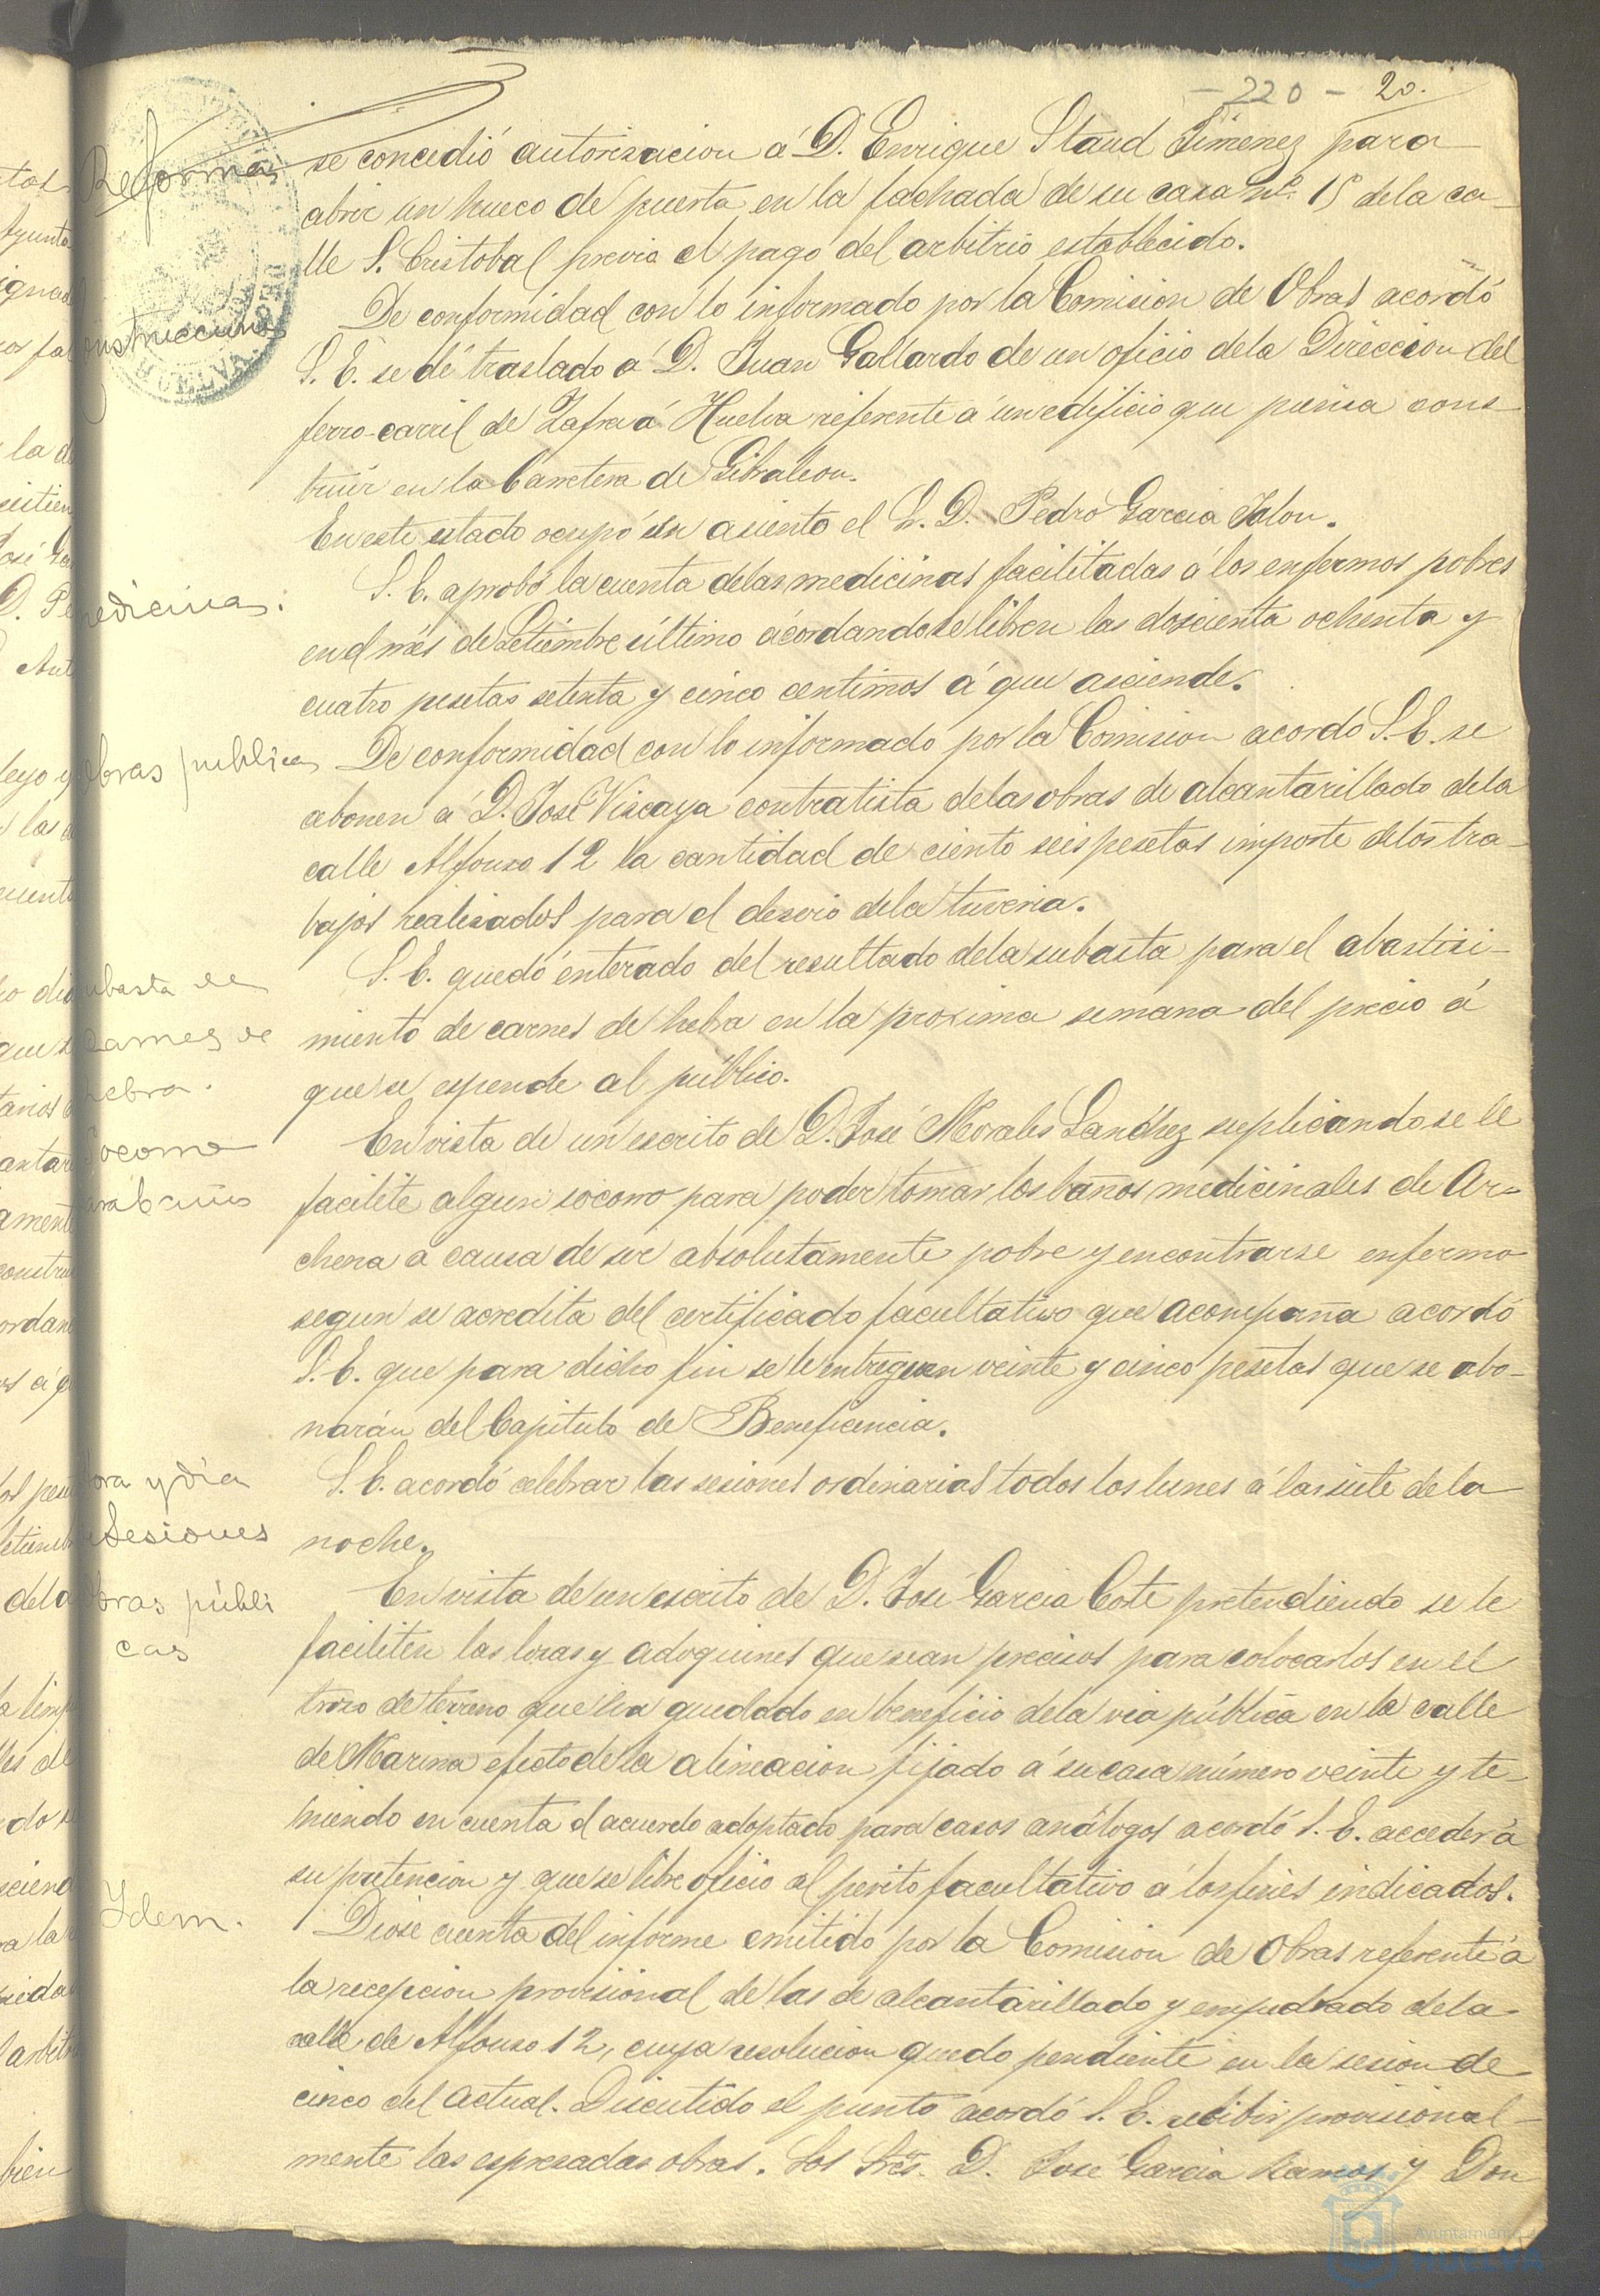 - 220 - 20.
Reformas
se concedió autorisacion á D. Enrique Staud Jimenez para
abrir un hueco de puerta en la fachada de su casa nº. 15 dela ca-
lle S. Cristobal previo el pago del arbitrio establecido.
Construcciones
De conformidad con lo informado por la Comision de Obras acordó
S. E. se dé traslado á D. Juan Gallardo de un oficio dela Direccion del
ferro-carril de Zafra á Huelva referente á un edificio que piensa cons-
truir en la Carretera de Gibraleon.
En este estado ocupó su asiento el S. D. Pedro Garcia Jalon.
Medicinas.
S. E. aprobó la cuenta delas medicinas facilitadas á los enfermos pobres
en el mes de Setiembre último acordando se libren las doscienta ochenta y
cuatro pesetas setenta y cinco centimos á que asciende.
Obras publicas
De conformidad con lo informado por la Comision acordó S. E. se
abonen á D. José Viscaya contratista delas obras de alcantarillado dela
calle Alfonso 12 la cantidad de ciento seis pesetas importe delos tra-
bajos realisados para el desvio dela tuveria.
Subasta de
carnes de
hebra.
S. E. quedó enterado del resultado dela subasta para el abasteci-
miento de carnes de hebra en la proxima semana del precio á
que se espende al público.
Socorro
para baños
En vista de un escrito de D. José Morales Sanchez suplicando se le
facilite algun socorro para poder tomar los baños medicinales de Ar-
chena á causa de ser absolutamente pobre y encontrarse enfermo
segun se acredita del certificado facultativo que acompaña acordó
S. E. que para dicho fin se le entreguen veinte y cinco pesetas que se abo-
narán del Capitulo de Beneficencia.
Hora y dia
de Sesiones
S. E. acordó celebrar las sesiones ordinarias todos los lunes á las siete de la
noche.
Obras públi
cas
En vista de un escrito de D. José Garcia Cote pretendiendo se le
faciliten las losas y adoquines que sean precisos para colocarlos en el
troso de terreno que ha quedado en beneficio dela via pública en la calle
de Marina efecto de la alineacion fijado á su casa número veinte y te-
niendo en cuenta el acuerdo adoptado para casos análogos acordó S. E. acceder á
su pretencion y que se libre oficio al perito facultativo á los fines indicados.
Ydem.
Diose cuenta del informe emitido por la Comision de Obras referente á
la recepcion provisional de las de alcantarillado y empedrado dela
calle de Alfonso 12, cuya resolucion quedo pendiente en la sesion de
cinco del actual. Discutido el punto acordó S. E. recibir provisional-
mente las espresadas obras. Los Sres. D. José Garcia Ramos y Don
Ayuntamiento de
HUELVA